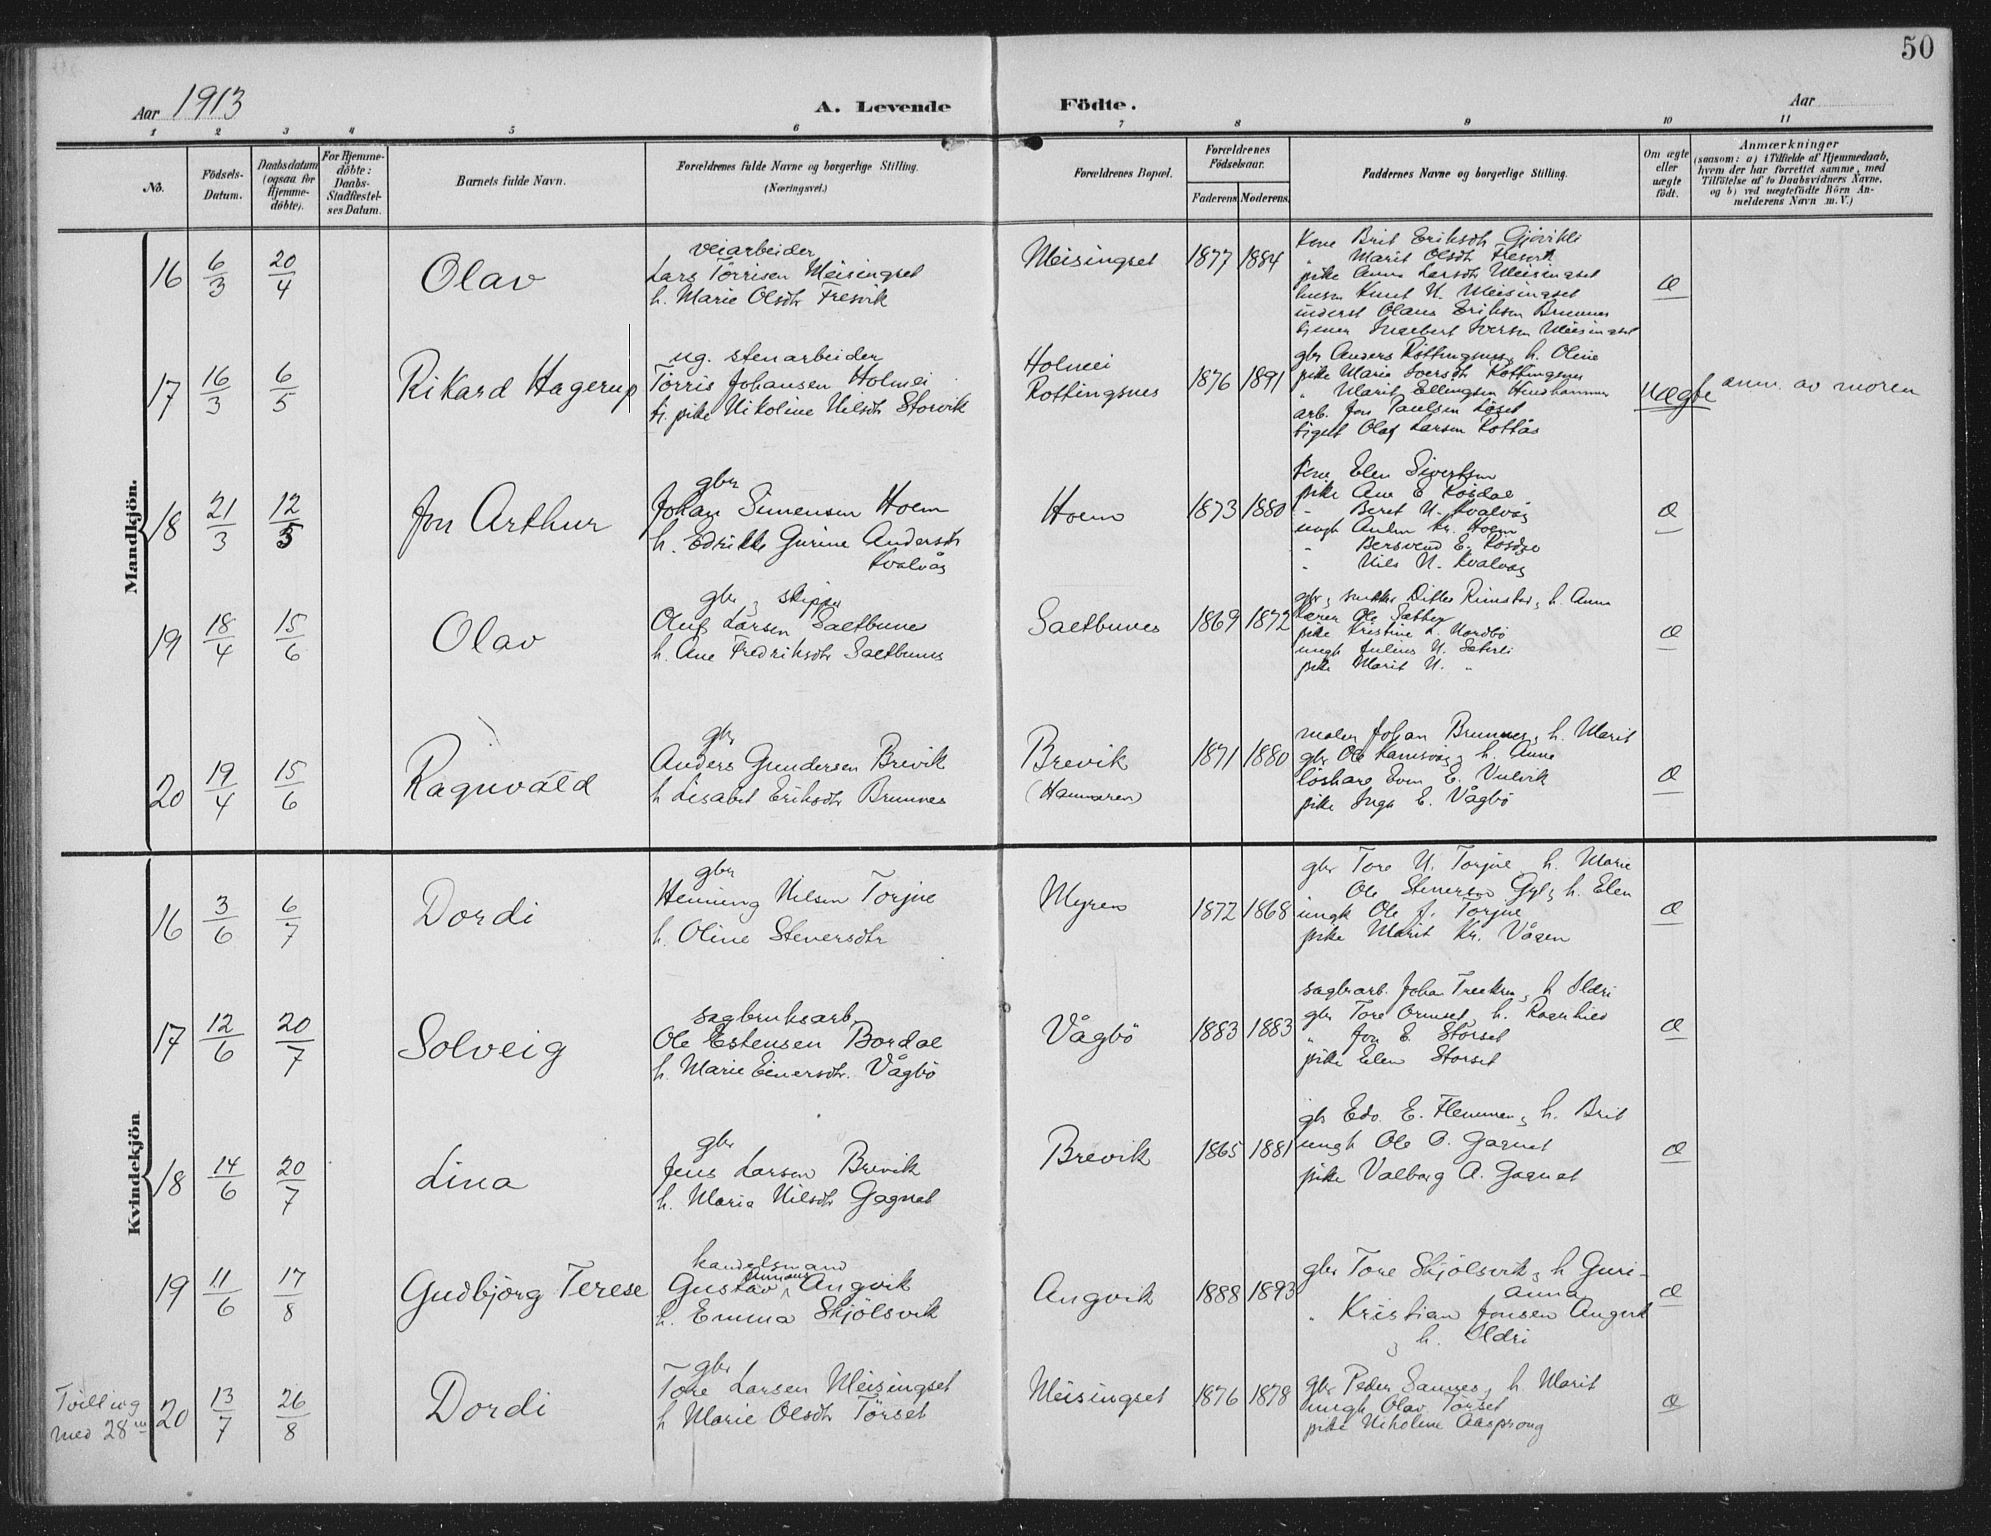 50
Aar 1913 A. Levende Födte. Aar
1 2 3 4 5 6 7 8 9 10 11
No.
Födsels-Datum.
Daabsdatum (ogsaa for Hjemme-döbte).
For Hjemme-döbte: Daabs-Stadfæstel-ses Datum.
Barnets fulde Navn.
Forældrenes fulde Navne og borgerlige Stilling.
(Næringsvei.)
Forældrenes Bopæl.
Forældrenes Födselsaar.
Faderens Moderens
Faddernes Navne og borgerlige Stilling.
Om ægte eller uægte födt.
Anmærkninger
(saasom: a) i Tilfælde af Hjemmedaab,
hvem der har forrettet samme, med
Tilföielse af to Daabsvidners Navne,
og b) ved uægtefödte Börn An-
melderens Navn m. V.)
Mandkjön.
16 6/3 20/4 Olav
veiarbeider
Lars Törrisen Meisingset
h. Marie Olsdtr Fresvik
Meisingset 1877 1884
Kone Brit Eriksdtr Gjövikli
" Marit Olsdtr
pike Anna Larsdtr Meisingset
husm Knut N. Meisingset
inderst Olaus Eriksen Brunnes
tjener Ingebert Iversen Meisingset
Æ
17 16/3 6/5 Rikard Hagerup
ug. stenarbeider
Törris Johansen Holmei
tj. pike Nikoline Nilsdtr Storvik
Holmei
Rottingsnes
1876 1891
gbr Anders Rottingsnes, h. Oline
pike Marie Iversdtr Rottingsnes
" Marit Ellingsen Hendhammer
arb. Jon Paulsen
Olaf Larsen Rottås
uægte
anm. av moren
18 21/3 12/5 Jon Arthur
gbr
Johan Simensen Hoem
h. Edrikke Gurine Andersdtr
Kvalvåg
Hoem 1873 1880
kone Elen Sivertsen
pike Ane E. Rösdal
" Beret N. Kvalvåg
ungk Kr. Hoem
" Bersvend E. Rösdal
" Nils N. Kvalvåg
Æ
19 18/4 15/6 Olav
gbr, skipper
Oluf Larsen Saltbunes
h. Ane Fredriksdtr Saltbunes
Saltbunes 1869 1872
gbr, Ditlev Rimstad, h. Anna
Lærer Ole Sætber
pike Kristine L. Nordbö
ungk Julius N. Sæterli
pike Marit N. "
Æ
20 19/4 15/6 Ragnvald
gbr
Anders Gundersen Brevik
h Lisabet Eriksdtr Brunnes
Brevik
(Hammeren)
1871 1880
maler Johan Brunnes, h. Marit
gbr Ole Kamsvåg, h. Anne
löskare Even E. Vulvik
pike Inga E. Vågbö
Æ
Kvindekjön
16 3/6 6/7 Dordi
gbr
Henning Nilsen Torjul
h. Oline Stenersdtr
Myren 1872 1868
gbr Tore N. Torjul, h. Marie
" Ole Stenersen Gyl, h. Elen
ungk Ole J. Torjul
pike Marit Kr. Vågen
Æ
17 12/6 20/7 Solveig
sagbruksarb
Ole Estensen Bordal
h. Marie Einersdtr. Vågbö
Vågbö 1883 1883
sagbrarb. Johan, h Ildri
gbr Tore Ormset, h. Ragnhild
" Jon E. Storset
pike Elen Storset
Æ
18 14/6 20/7 Lina
gbr
Jens Larsen Brevik
h. Maria Nilsdtr Gagnat
Brevik 1865 1881
gbr Edv. E. Flemmen, h. Brit
ungk Ole O. Gagnat
pike Valborg A. Gagnat
Æ
19 11/6 17/8 Gudbjörg Terese
handelsmand
Gustav Angvik
h. Emma Skjölsvik
Angvik 1888 1893
gbr Tore Skjölsvik, h Guri-
anna
" Kristian Jonsen Angvik
, h. Oldri
Æ
Tvilling med 28
20 13/7 26/8 Dordi
gbr
Tore Larsen Meisingset
h Marie Olsdtr Törset
Meisingset 1876 1878
gbr Peder Sannes, h. Marit
ungk Olav Törset
pike Nikoline Aasprong
Æ